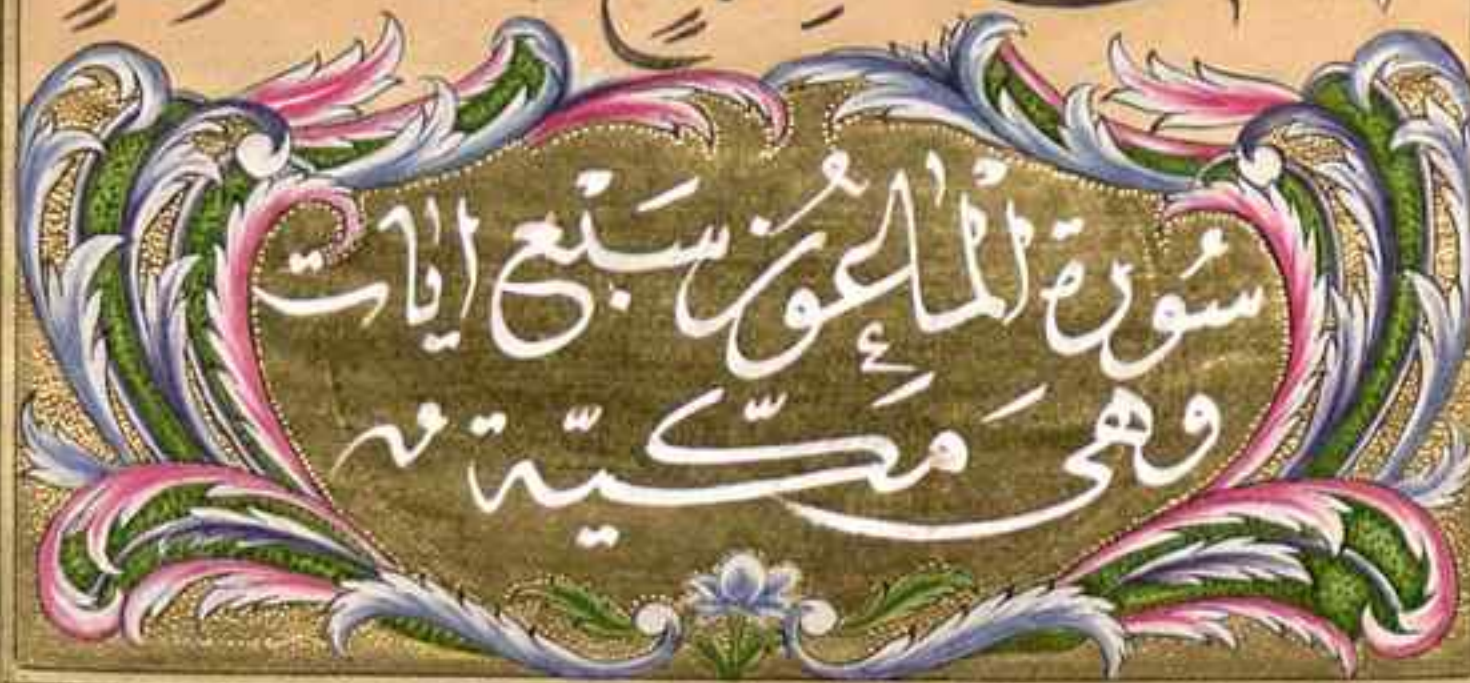 سُورة الْمٰاعُون سَبْع اٰيات
وَهَى مَكّيّة